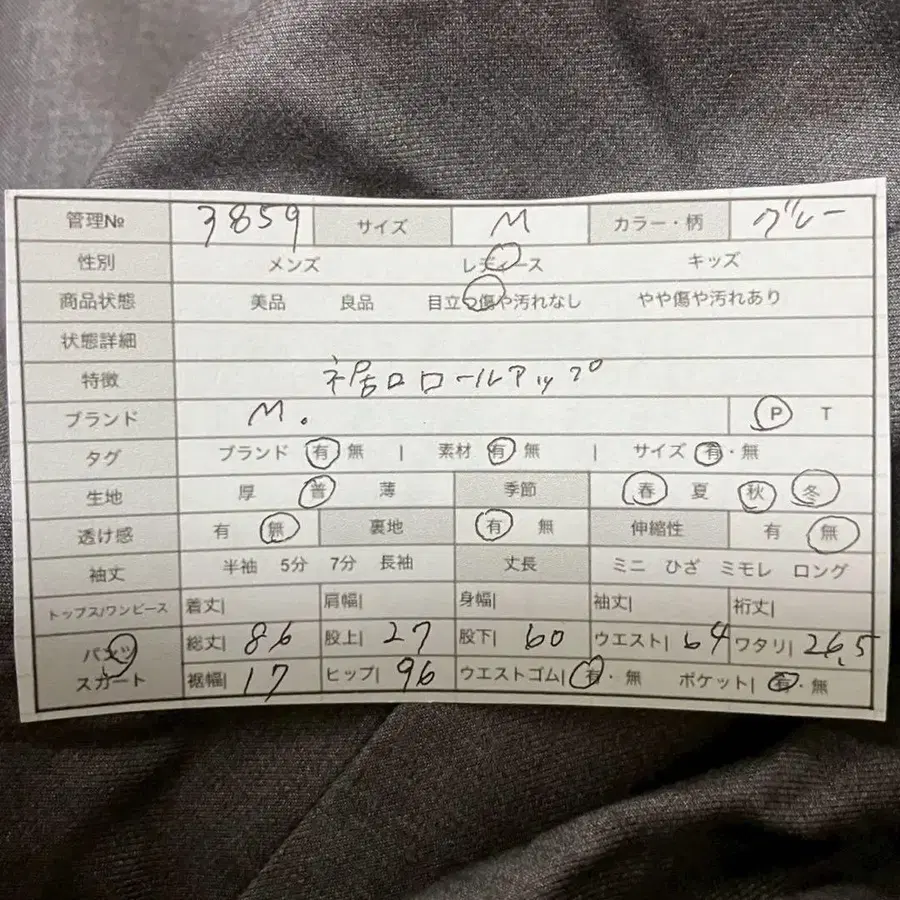 管理№ 3859 サイズ M カラー・柄 グレー
性別 メンズ レディース キッズ
商品状態 美品 良品 目立つ傷や汚れなし やや傷や汚れあり
状態詳細
特徴 裾口ロールアップ
ブランド M. P T
タグ ブランド 有 無 | 素材 有 無 | サイズ 有・無
生地 厚 普 薄 季節 春 夏 秋 冬
透け感 有 無 裏地 有 無 伸縮性 有 無
袖丈 半袖 5分 7分 長袖 丈長 ミニ ひざ ミモレ ロング
トップス/ワンピース 着丈| 肩幅| 身幅| 袖丈| 裄丈|
パンツ 総丈| 86 股上| 27 股下| 60 ウエスト| 64 ワタリ| 26.5
スカート 裾幅| 17 ヒップ| 96 ウエストゴム| 有・無 ポケット| 有・無